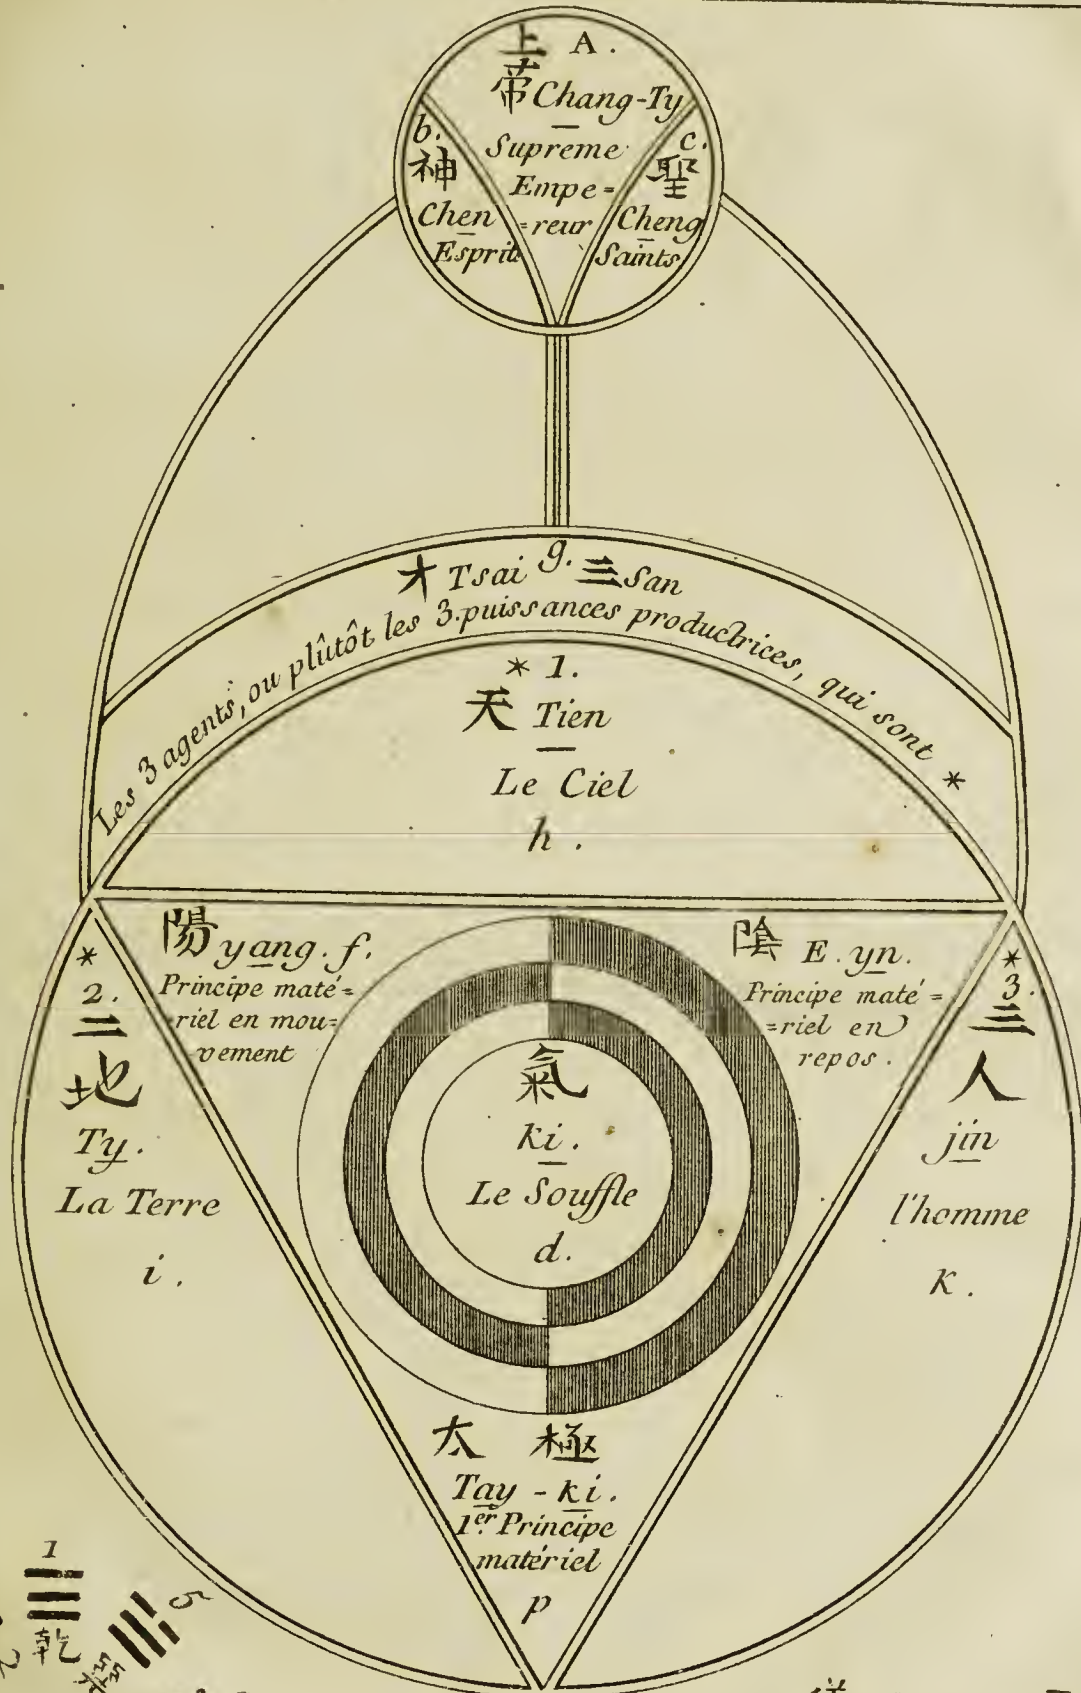 上 A.
帝 Chang-Ty
Suprême
Empe=
=reur
b.
神
Chen
Esprit
c.
聖
Cheng
Saints
才 Tsai g. 三 San
Les 3 agents, ou plûtôt les 3. puissances productrices, qui sont *
* 1.
天 Tien
Le Ciel
h.
陽 yang. f.
Principe maté=
riel en mou=
vement
陰 E. yn.
Principe maté=
=riel en
repos.
* 2.
二
地
Ty.
La Terre
i.
* 3.
三
人
jin
l'homme
K.
氣
ki.
Le Souffle
d.
太 極
Tay - ki.
1er. Principe
matériel
p
1
乾
5
巽
2